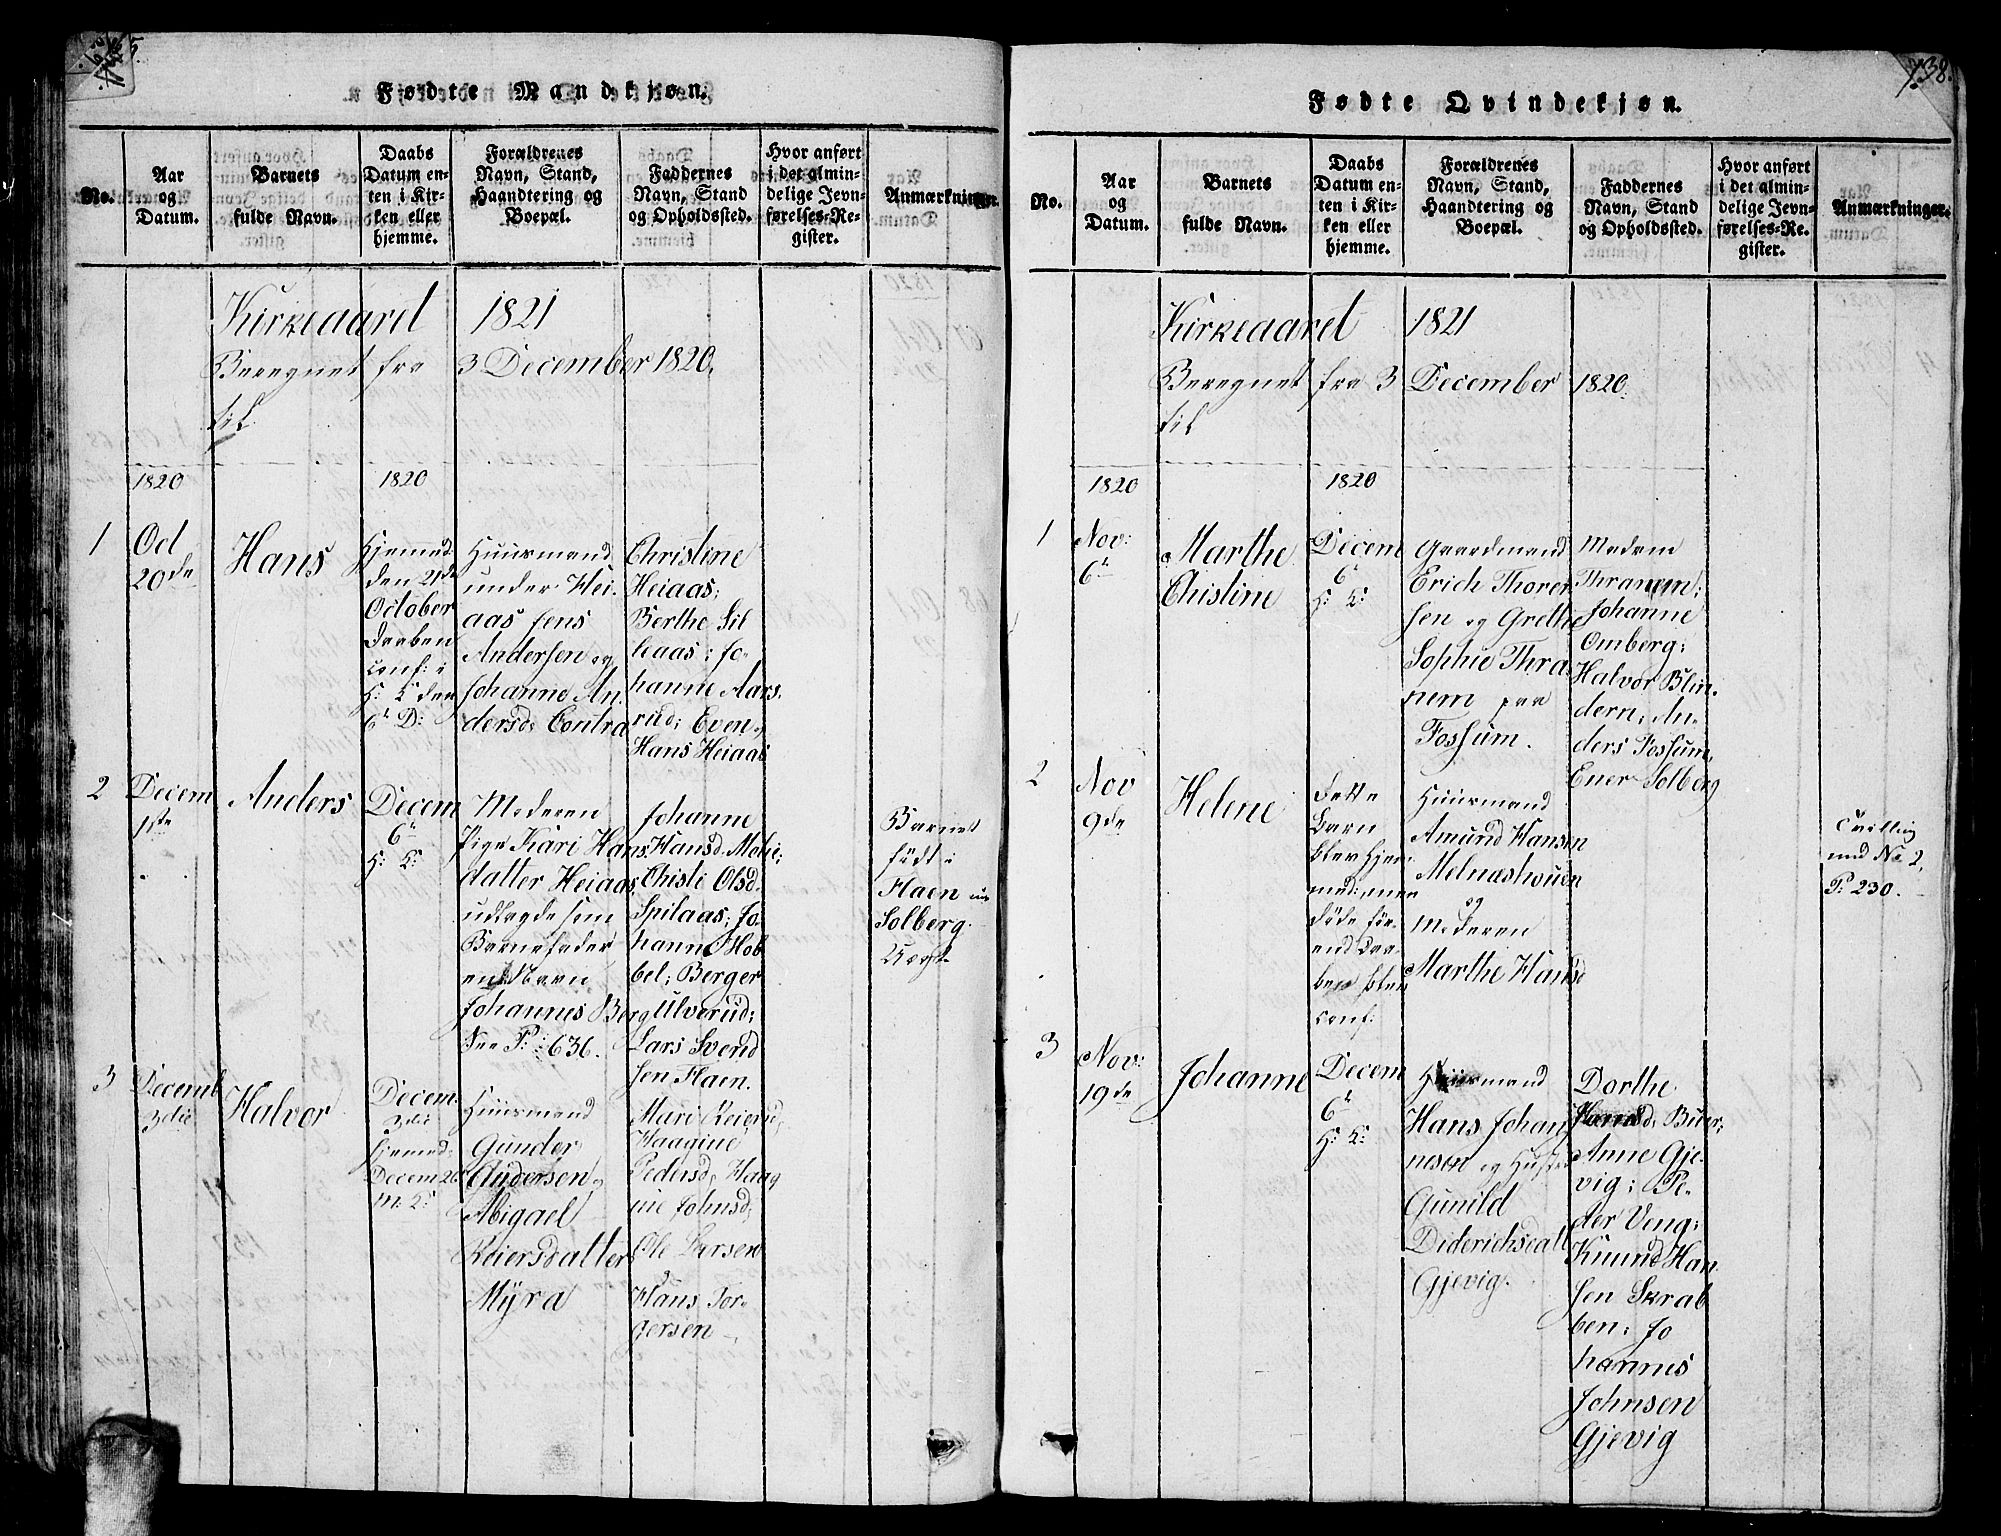 Fødte Mandkjøn.
No.
Aar
og
Datum.
Barnets
fulde Navn.
Daabs
Datum en-
ten i Kir-
ken eller
hjemme.
Forældrenes
Navn, Stand,
Haandtering og
Boepæl.
Faddernes
Navn, Stand
og Opholdssted.
Hvor anført
i det almin-
delige Jevn-
førelses-Re-
gister.
Anmærkninger.
Kirkeaaret 1821
Beregnet fra 3 December 1820.
til
1820
1820
1
Oct
20de
Hans
Hjemed:
den 21de
October
Daaben
conf: i
H: K den
6te D:
Huusmand
under Hei-
aas Jens
Andersen og
Johanne An-
dersd: Contra
Christine
Heiaas;
Berthe Sil
haas; Jo-
hanne Aars-
rud; Even,
Hans Heiaas
2
Decem
1ste
Anders
Decem
6te
H: K:
Moderen
Pige Kari Hans
datter Heiaas
udlagde som
Barnefader
Johannes Berg
See P: 636.
Johanne
Hansd. Mohe;
Chisti Olsd.
Spilaas; Jo-
hanne Hob
bel; Berger
Ulverud;
Lars Svend
sen Flaen.
Barnet
født i
Flaen
Solberg
3
Decemb
3die
Halvor
Decem.
3die
Hjemed:
Decem 26
M: K:
Huusmand
Gunder
Andersen og
Abigael
Reiersdatter
Myra
Mari
Haagine
Pedersd, Haag
ine Johnsd,
Ole Larsen
Hans Tor-
gersen
738.
Fødte Qvindekjøn.
No.
Aar
og
Datum.
Barnets
fulde Navn.
Daabs
Datum en-
ten i Kir-
ken eller
hjemme.
Forældrenes
Navn, Stand,
Haandtering og
Boepæl.
Faddernes
Navn, Stand
og Opholdssted.
Hvor anført
i det almin-
delige Jevn-
førelses-Re-
gister.
Anmærkninger.
Kirkeaaret 1821
Beregnet fra 3 December 1820.
til
1820
1820
1
Nov:
6te
Marthe
Chistine
Decem
6te
H: K:
Gaardmand
Erich Thorer
sen og Grethe
Sophie Thra
nem paa
Fossum.
Madam
Thranem;
Johanne
Omberg;
Halvor Blin-
dern; An-
ders Fossum,
Ener Solberg
2
Nov
9de
Helene
Dette
Barn
blev hjem-
med: men
døde før-
end Daa-
ben blev
conf:
Huusmand
Amund Hansen
Melnæshouen
og
Moderen
Marthe Hansd
Tvilling
med No 2,
P: 230.
3
Nov:
19de
Johanne
Decem
6te
H: K:
Huusmand
Hans Johan
nesen og Hustru
Gunild
Diderichsdatt
Gjevig.
Dorthe
Hansd, Buer;
Anne Gje-
vig; Pe-
der Veng;
Knund Han
sen Skrab
ben; Jo
hannes
Johnsen
Gjevig